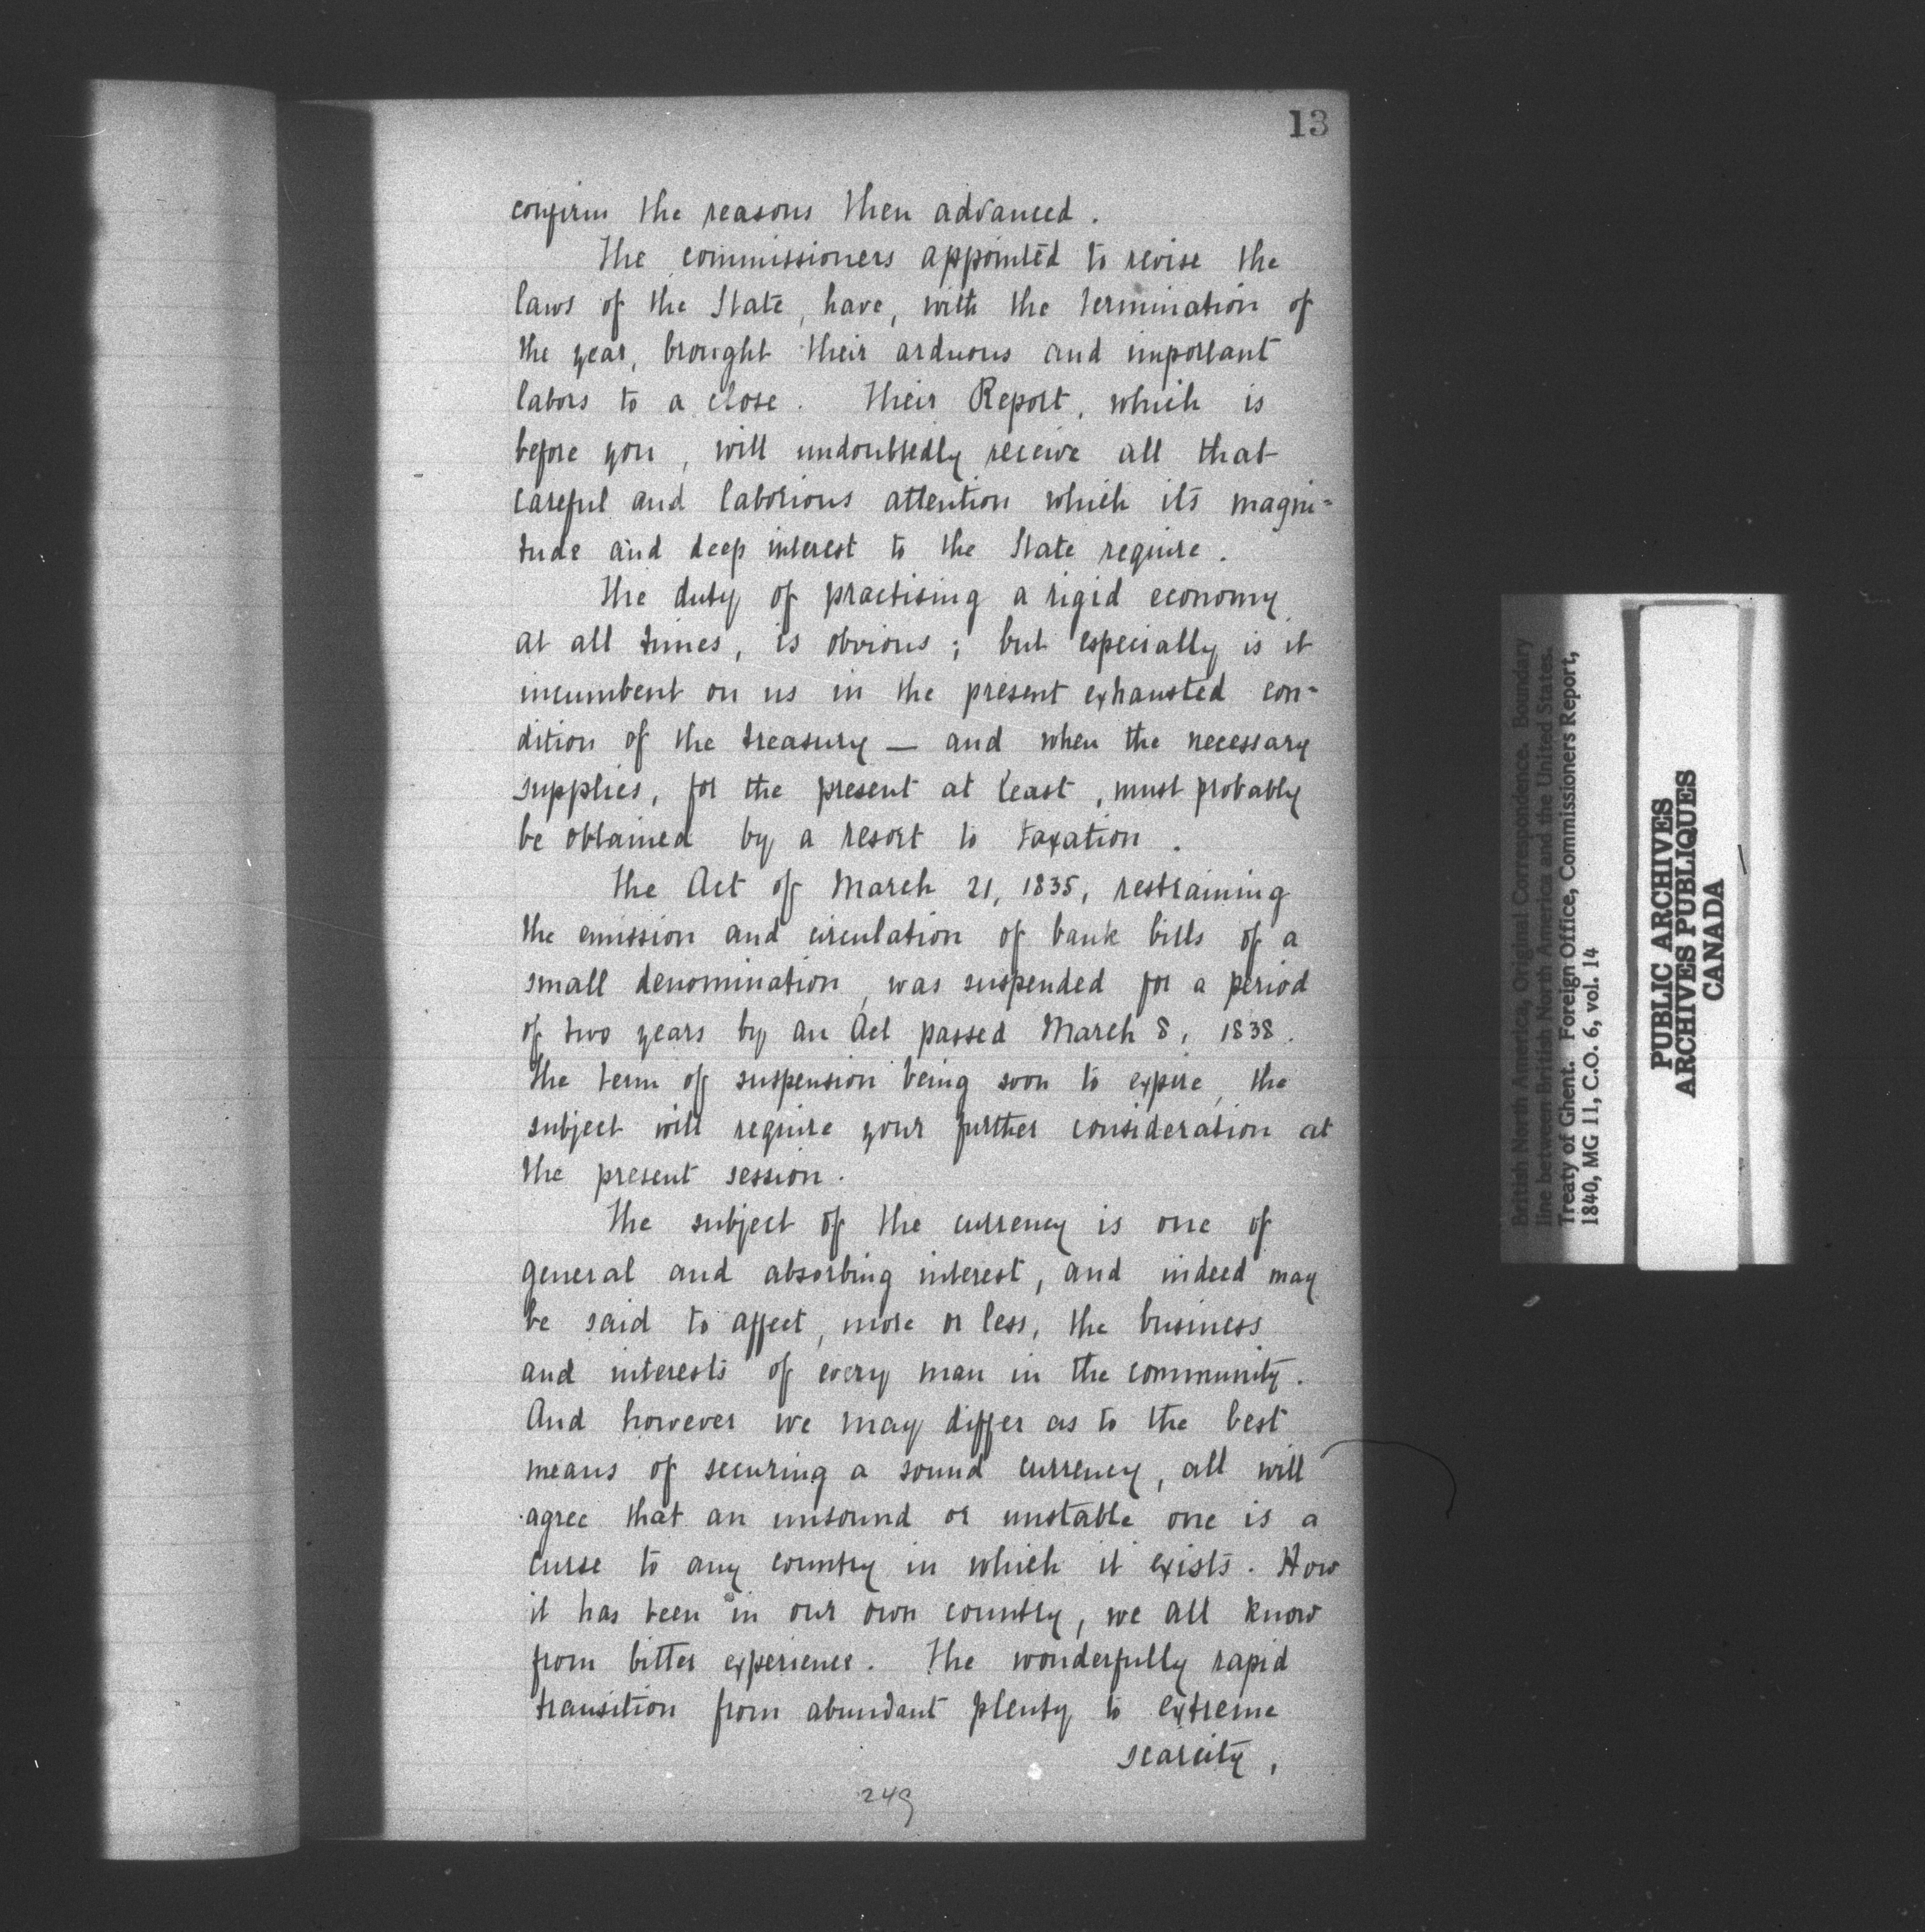 13
confirm the reasons then advanced.
The commissioners appointed to revise the
laws of the State, have, with the termination of
the year, brought their arduous and important
labors to a close. Their Report, which is
before you, will undoubtedly receive all that
careful and laborious attention which its magni=
tude and deep interest to the State require.
The duty of practising a rigid economy
at all times, is obvious; but especially is it
incumbent on us in the present exhausted con=
dition of the treasury — and when the necessary
supplies, for the present at least, must probably
be obtained by a resort to taxation.
The Act of March 21, 1835, restraining
the emission and circulation of bank bills of a
small denomination, was suspended for a period
of two years by an Act passed March 8, 1838.
The term of suspension being soon to expire, the
subject will require your further consideration at
the present session.
The subject of the currency is one of
general and absorbing interest, and indeed may
be said to affect, more or less, the business
and interests of every man in the community.
And however we may differ as to the best
means of securing a sound currency, all will
agree that an unsound or unstable one is a
curse to any country in which it exists. How
it has been in our own country, we all know
from bitter experience. The wonderfully rapid
transition from abundant plenty to extreme
scarcity,
249
British North America, Original Correspondence. Boundary
line between British North America and the United States.
Treaty of Ghent. Foreign Office, Commissioners Report,
1840, MG 11, C.O. 6, vol. 14
PUBLIC ARCHIVES
ARCHIVES PUBLIQUES
CANADA